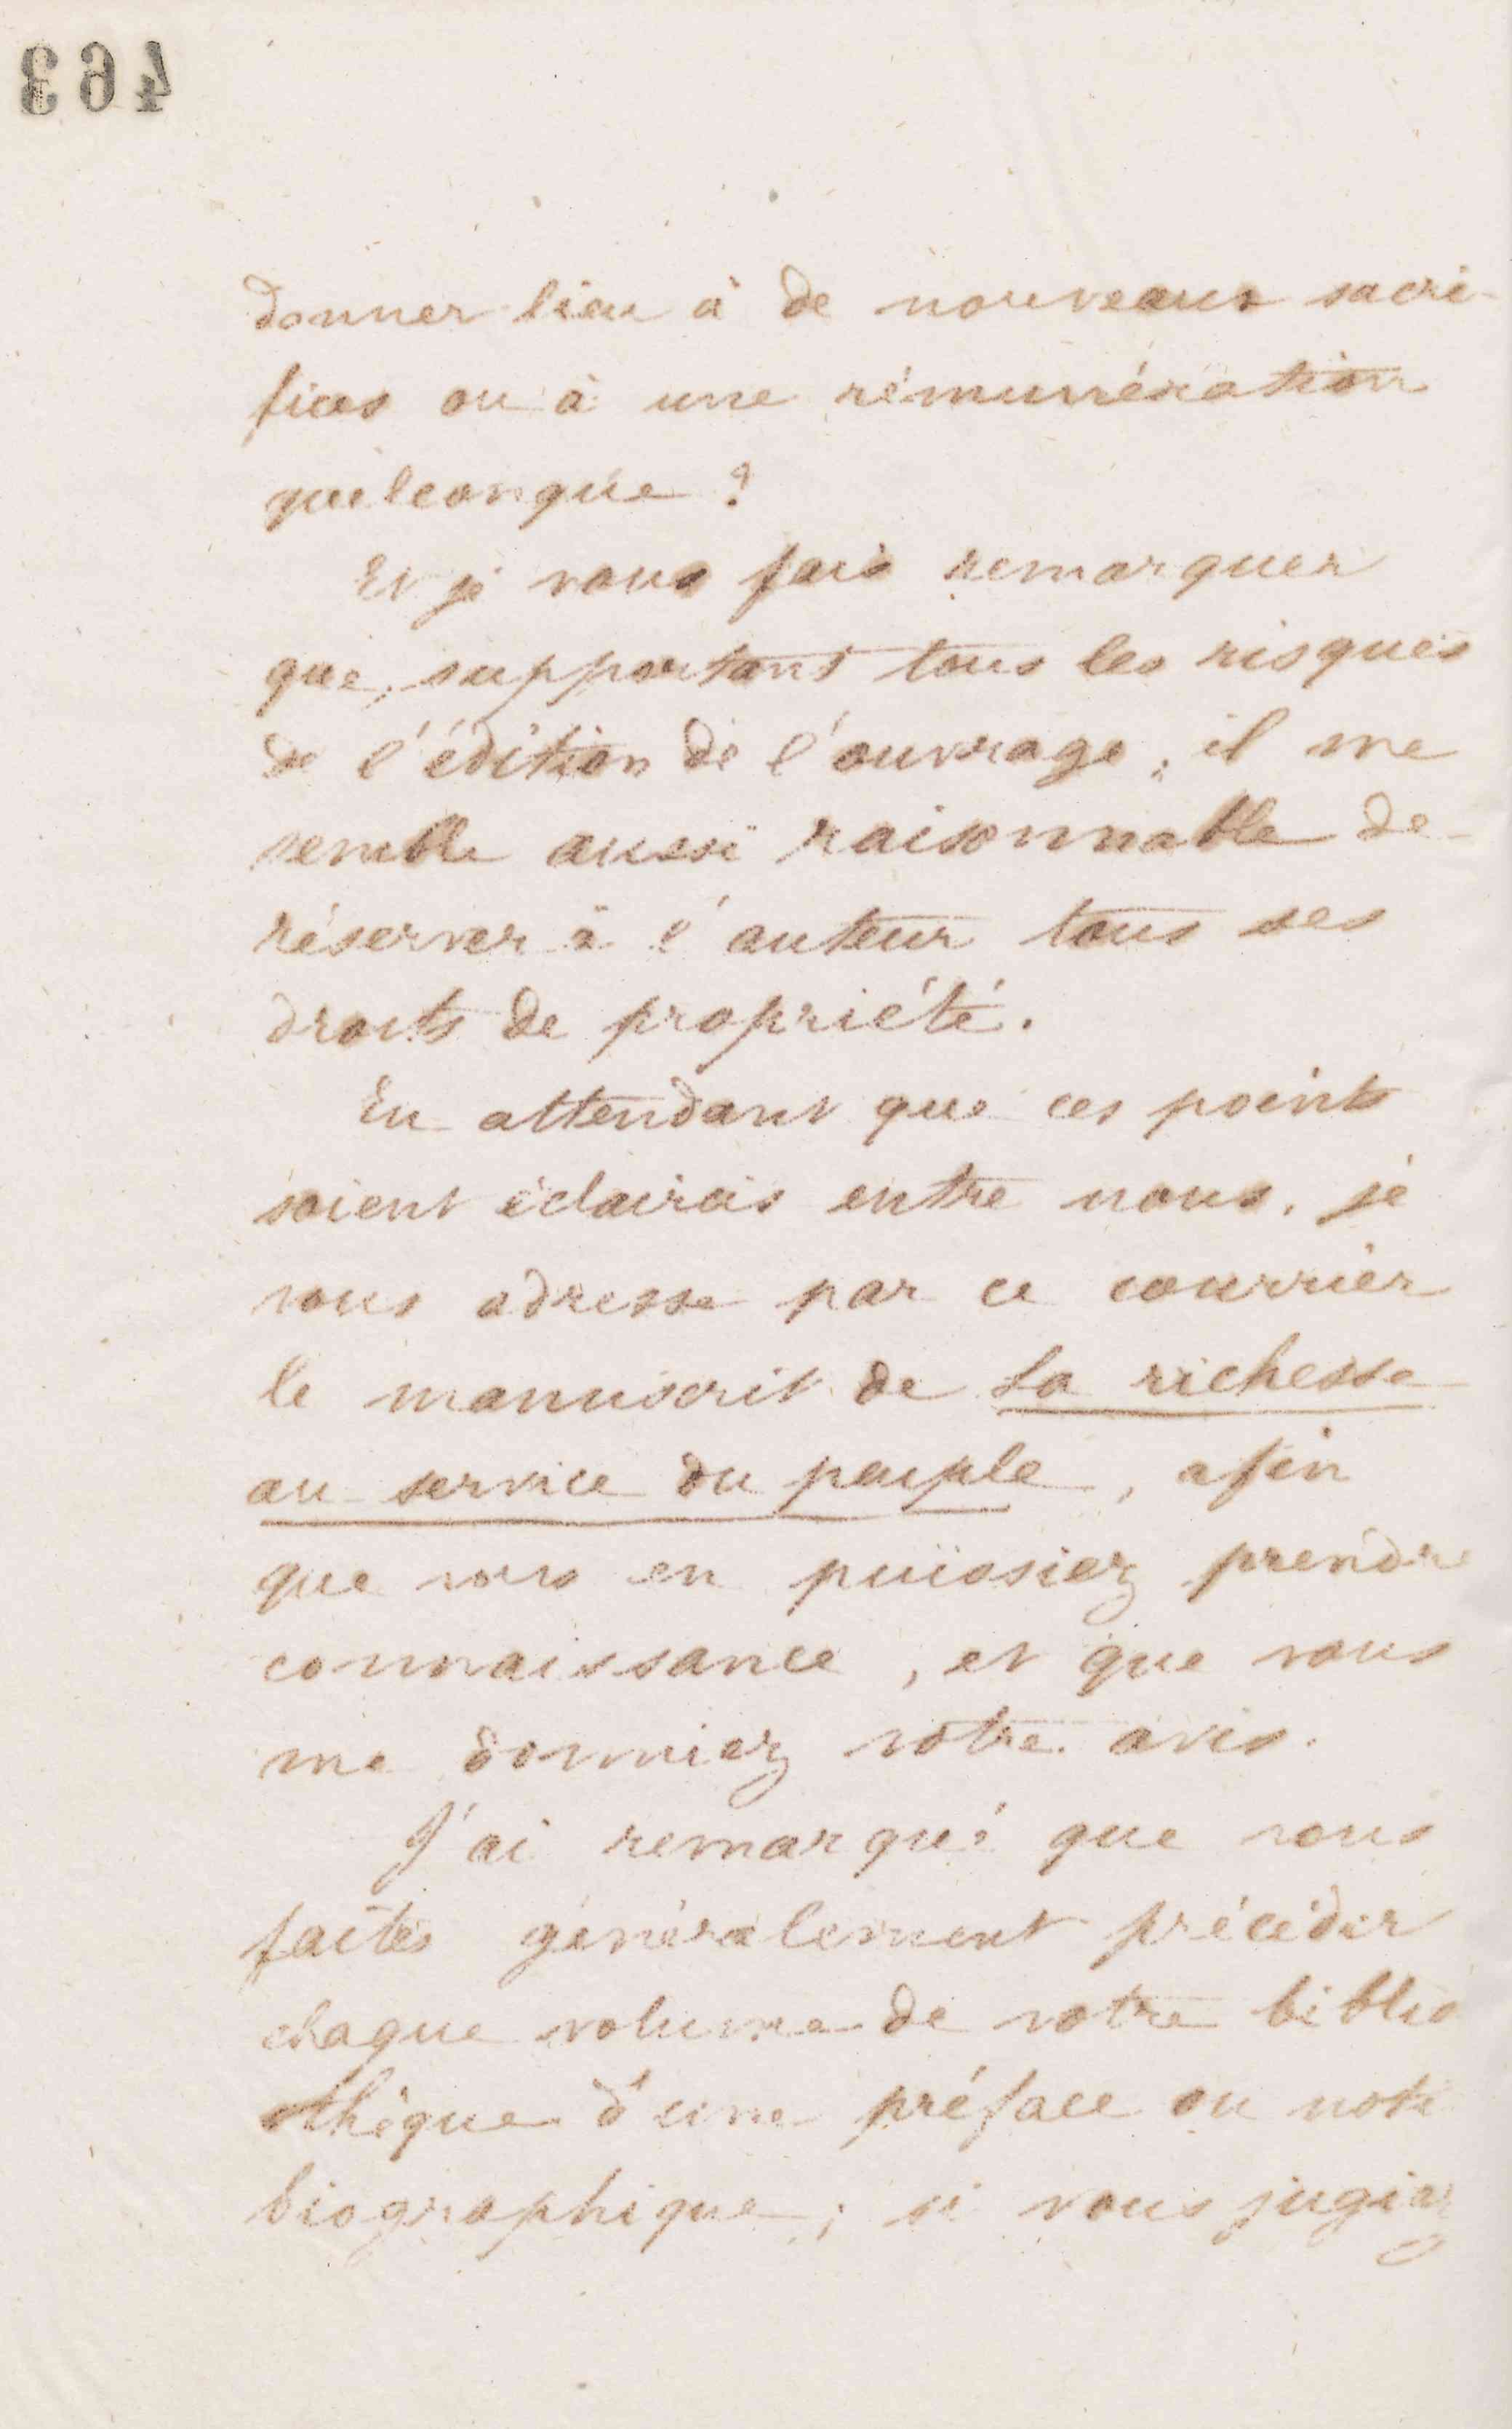 463
donner lieu à de nouveaux sacri-
fices ou à une rémunération
quelconque ?
Et je vous fais remarquer
que, supportant tous les risques
de l'édition de l'ouvrage, il me
semble aussi raisonnable de
réserver à l'auteur tous ses
droits de propriété.
En attendant que ces points
soient éclaircis entre nous, je
vous adresse par ce courrier
le manuscrit de La richesse
au service du peuple, afin
que vous en puissiez prendre
connaissance, et que vous
me donniez votre avis.
J'ai remarqué que vous
faites généralement précéder
chaque volume de votre biblio
thèque d'une préface ou note
biographique ; si vous jugiez